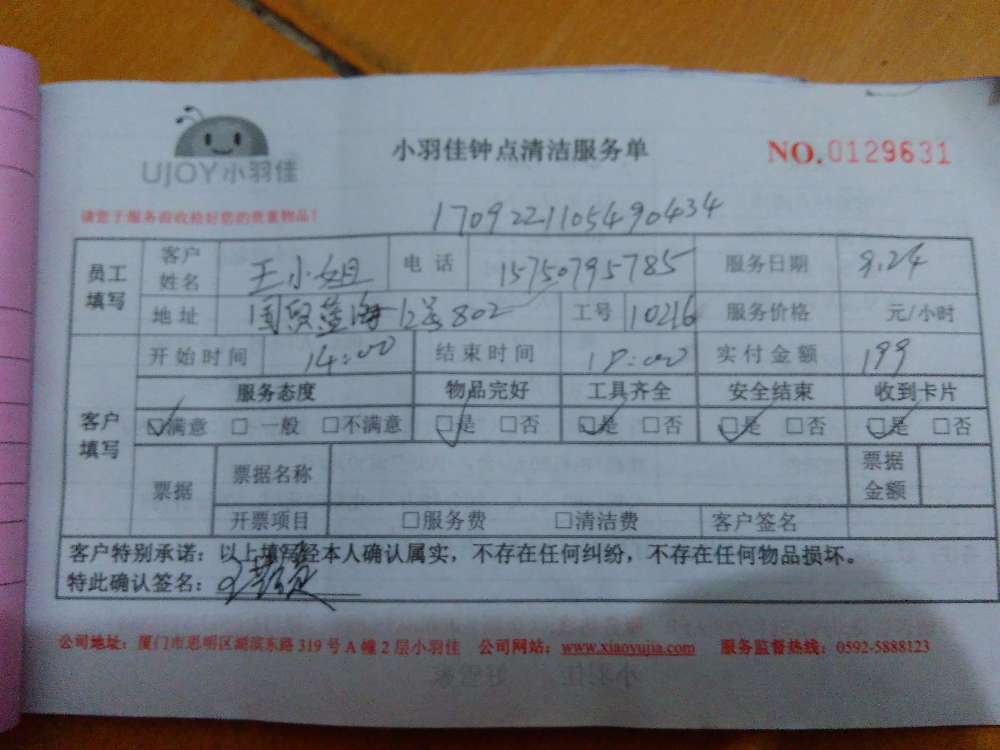 UJOY小羽佳
小羽佳钟点清洁服务单
NO.0129631
请您于服务前收检好您的贵重物品！
1709221105490434
员工填写 客户姓名 王小姐 电话 15750795785 服务日期 9.24
地址 国贸蓝海12号802 工号 10216 服务价格 元/小时
客户填写 开始时间 14:00 结束时间 18:00 实付金额 199
服务态度 物品完好 工具齐全 安全结束 收到卡片
☑满意 □一般 □不满意 ☑是 □否 ☑是 □否 ☑是 □否 ☑是 □否
票据 票据名称 票据金额
开票项目 □服务费 □清洁费 客户签名
客户特别承诺：以上填写经本人确认属实，不存在任何纠纷，不存在任何物品损坏。
特此确认签名：
公司地址：厦门市思明区湖滨东路319号A幢2层小羽佳 公司网站：www.xiaoyujia.com 服务监督热线：0592-5888123